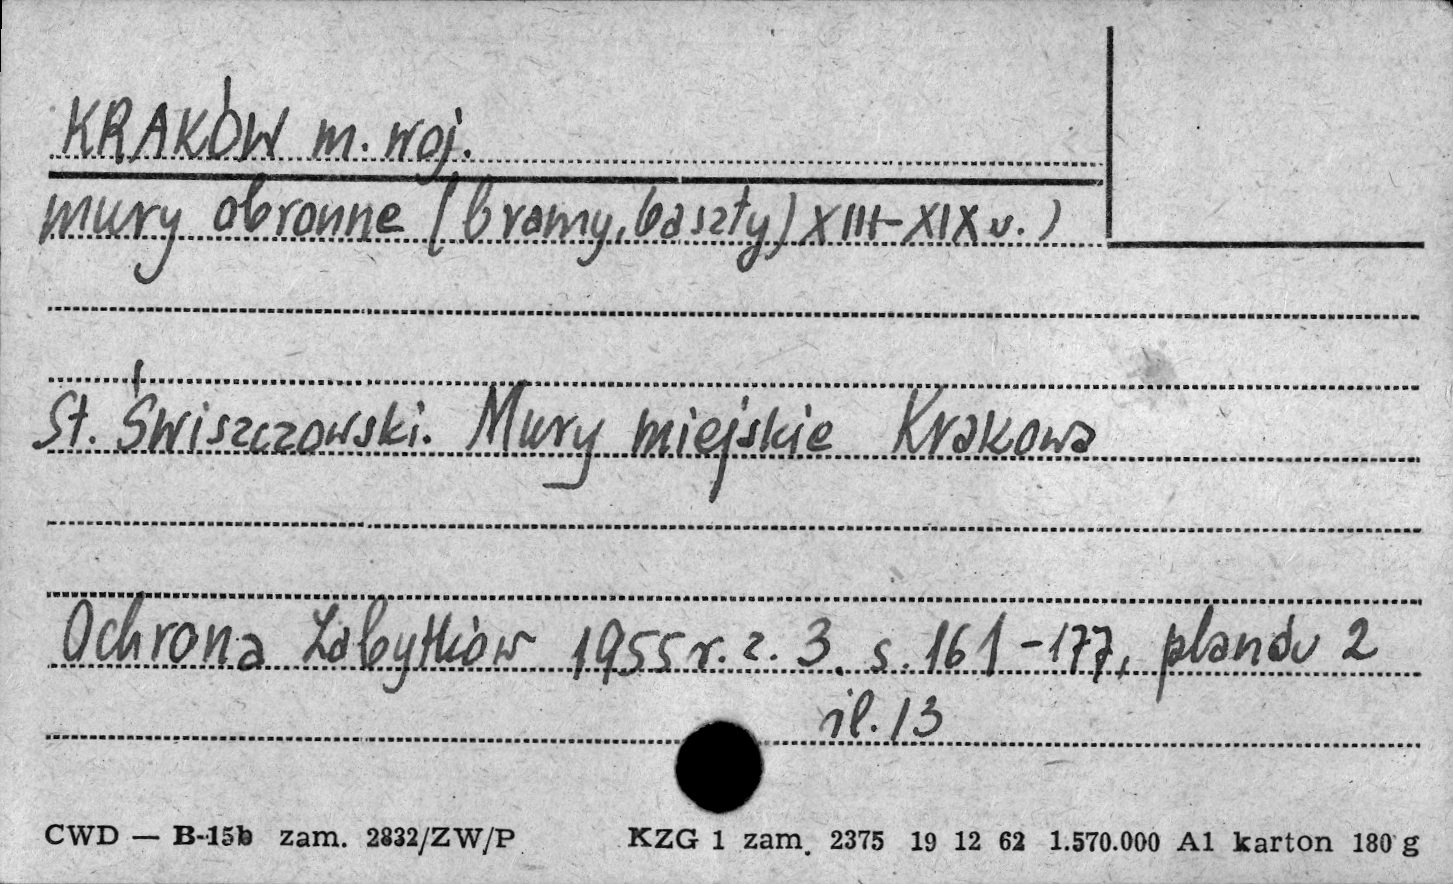 KRAKÓW m. woj.
mury obronne (bramy, baszty) XIII-XIX w. )
St. Świszczowski. Mury miejskie Krakowa
Ochrona Zabytków 1955 r. z. 3. s. 161-177, planów 2
il. 13
CWD — B-15b zam. 2832/ZW/P KZG 1 zam. 2375 19 12 62 1.570.000 A1 karton 180 g